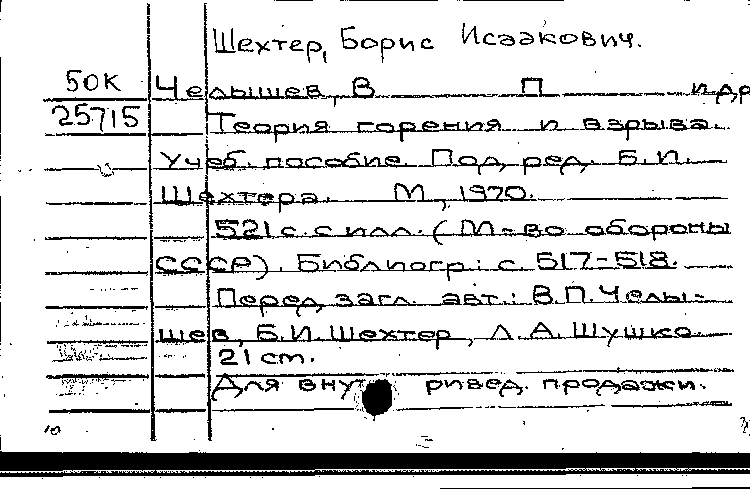 Шехтер, Борис Исаакович.
50К Челышев, В П и др
25715 Теория горения и взрыва.
Учеб. пособие. Под ред. Б.И.
Шехтера. М., 1970.
521 с. с илл. (М-во обороны
СССР). Библиогр.: с. 517-518.
Перед загл. авт.: В.П.Челы-
шев, Б.И.Шехтер, Л.А.Шушко.
21 см.
Для внут ривед. продажи.
10